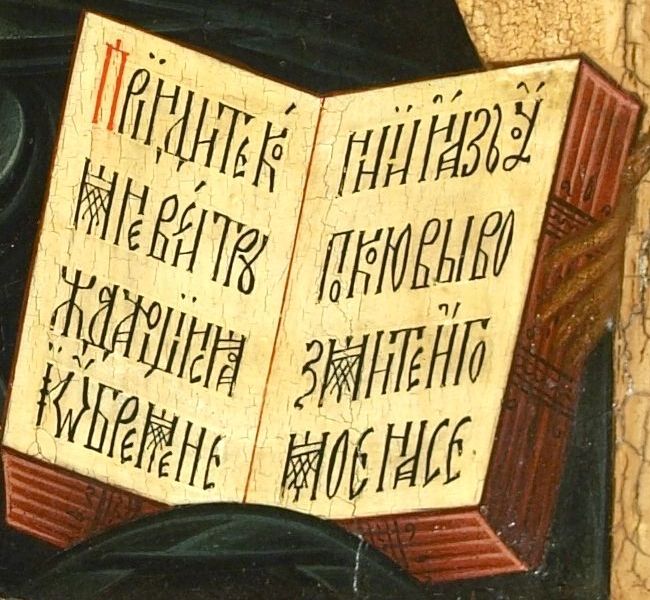 Прїидите ко
мне вси тꙋ
ждающїисѧ
и ѡбремене
нїи и азъ ꙋ
покою вы во
змите иго
мое на се